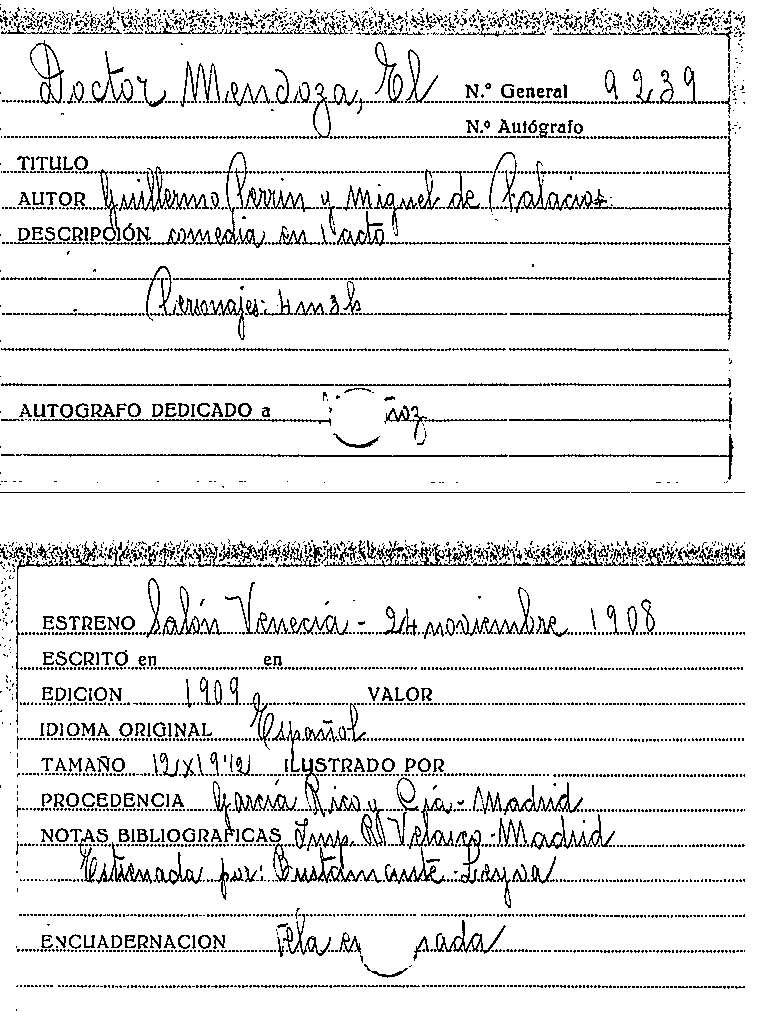 Doctor Mendoza, El N.º General 9239
N.º Autógrafo
TITULO
AUTOR Guillermo Perrin y Miguel de Palacios
DESCRIPCIÓN comedia en 1 acto
Personajes: 4m3h
AUTOGRAFO DEDICADO a
ESTRENO Salón Venecia - 24 noviembre 1908
ESCRITO en en
EDICION 1909 VALOR
IDIOMA ORIGINAL Español
TAMAÑO 12x19 ILUSTRADO POR
PROCEDENCIA García Rico y Cía - Madrid
NOTAS BIBLIOGRAFICAS Imp. R Velasco - Madrid
Estrenada por: Bustamante - Leyva
ENCUADERNACION Tela